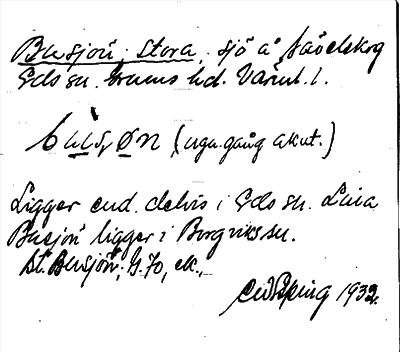 Busjön, Stora, sjö å häradskog
Eds sn. Grums hd. Värml. l.
bùs,øn (uga. gång akut.)
Ligger end. delvis i Eds sn. Lilla
Busjön ligger i Borgviks sn.
St. Busjön; G. 70, ek.,
1932.